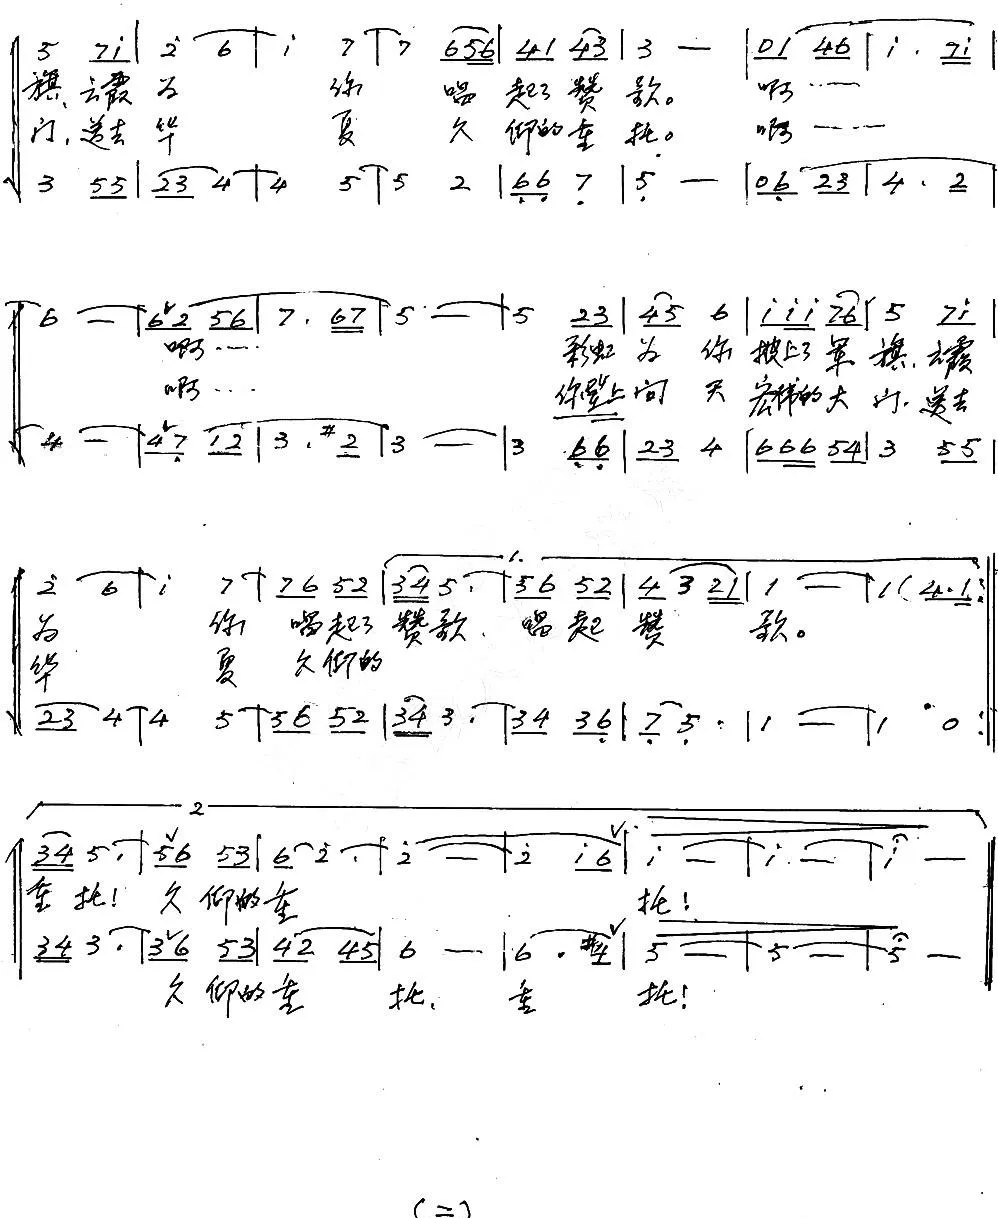 5 7i | 2 6 | i 7 | 7 656 | 41 43 | 3 — | 01 46 | i · 7i |
旗，云霞为 你 唱起了赞歌。 啊……
门，送去华 夏 久仰的重托。 啊……
3 55 | 23 4 | 4 5 | 5 2 | 66 7 | 5 — | 06 23 | 4 · 2 |
6 — | 62 56 | 7 · 67 | 5 — | 5 23 | 45 6 | iii 76 | 5 7i |
啊…… 彩虹为你披上了军旗，云霞
啊…… 你登上问天宏伟的大门，送去
— | 47 12 | 3 · #2 | 3 — | 3 66 | 23 4 | 666 54 | 3 55 |
1.
2 6 | i 7 | 76 52 | 34 5 · | 56 52 | 4 3 21 | 1 — | 1 ( 4·1 :
为 你 唱起了赞歌，唱起赞 歌。
华 夏 久仰的
23 4 | 4 5 | 56 52 | 34 3 · | 34 36 | 7 5 · | 1 — | 1 0 :
2
34 5 · | 56 53 | 6 2 · | 2 — | 2 i6 | i — | i — | i —
重托！久仰的重 托！
34 3 · | 36 53 | 42 45 | 6 — | 6 · #4 | 5 — | 5 — | 5 —
久仰的重 托，重 托！
(二)